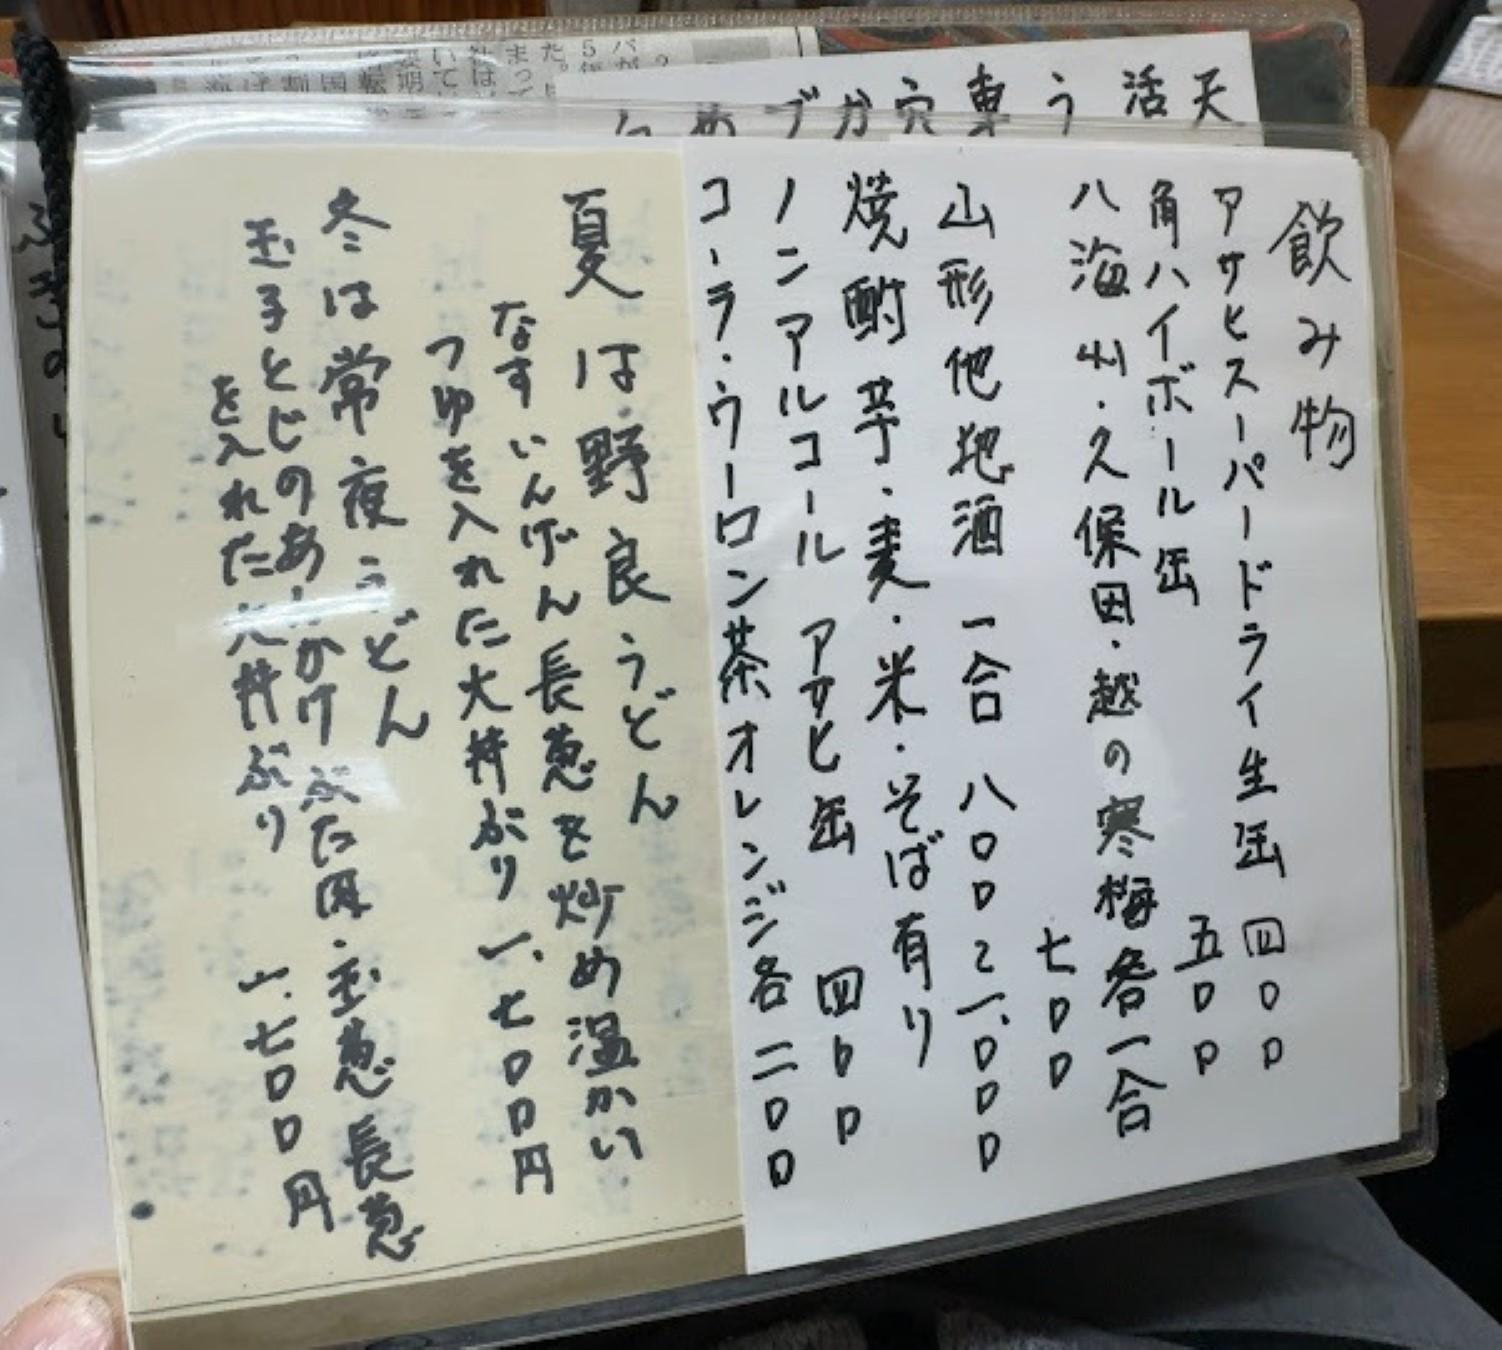 天
活
う
車
穴
か
飲み物
アサヒスーパードライ生缶 四〇〇
角ハイボール缶 五〇〇
八海山・久保田・越の寒梅各一合
七〇〇
山形他地酒 一合 八〇〇と一、〇〇〇
焼酎 芋・麦・米・そば有り
ノンアルコール アサヒ缶 四〇〇
コーラ・ウーロン茶オレンジ各二〇〇
夏は野良うどん
なすいんげん長葱を炒め温かい
つゆを入れた大丼ぶり 一、七〇〇円
冬は常夜うどん
玉子とじのあんかけぶた肉・玉葱長葱
を入れた大丼ぶり 一、七〇〇円